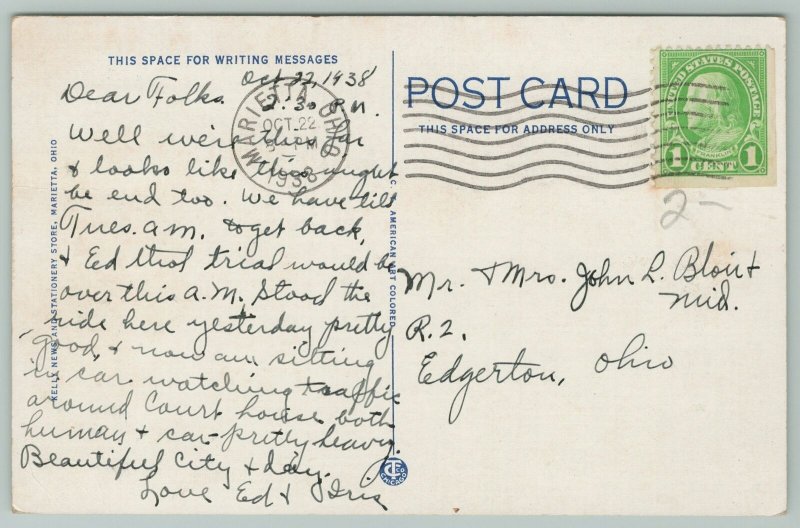 THIS SPACE FOR WRITING MESSAGES
Oct 22, 1938
2:30 P.M.
Dear Folks.
Well we're this far
& looks like this might
be end too. We have till
Tues. a.m. to get back,
& Ed thot trial would be
over this A.M. Stood the
ride here yesterday pretty
good, & now am sitting
in car watching traffic
around Court house both
human & car-pretty heavy.
Beautiful City & day.
Love Ed & Iris
MARIETTA OHIO
OCT 22
1938
KELL'S NEWS AND STATIONERY STORE, MARIETTA, OHIO
C. T. AMERICAN ART COLORED
CHICAGO
POST CARD
THIS SPACE FOR ADDRESS ONLY
UNITED STATES POSTAGE
FRANKLIN
1 CENT 1
2-
Mr. & Mrs. John L. Blair &
Mid.
R. 2.
Edgerton, Ohio